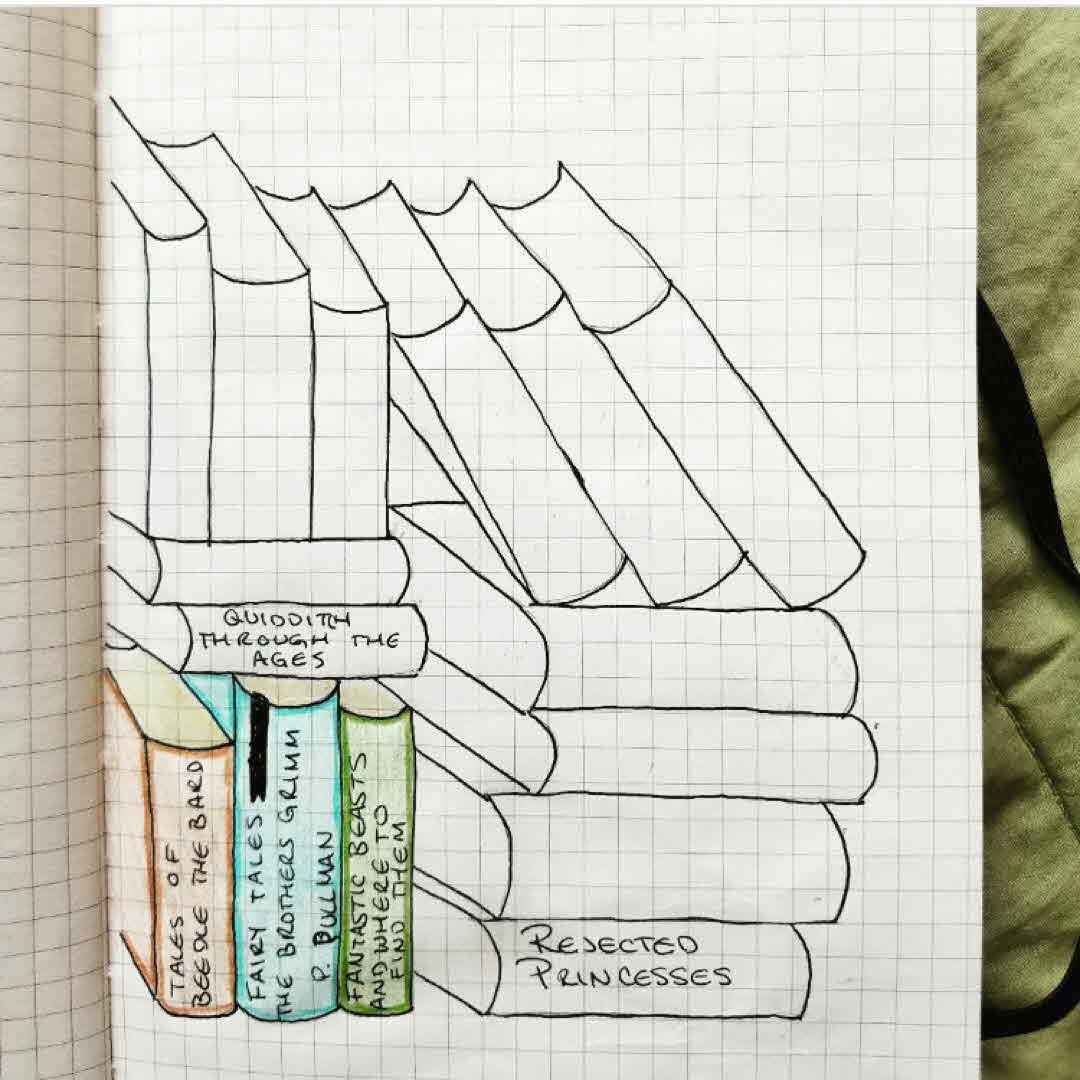 QUIDDITH
THROUGH THE
AGES
TALES OF
BEEDLE THE BARD
FAIRY TALES
THE BROTHERS GRIMM
P. PULLMAN
FANTASTIC BEASTS
AND WHERE TO
FIND THEM
REJECTED
PRINCESSES